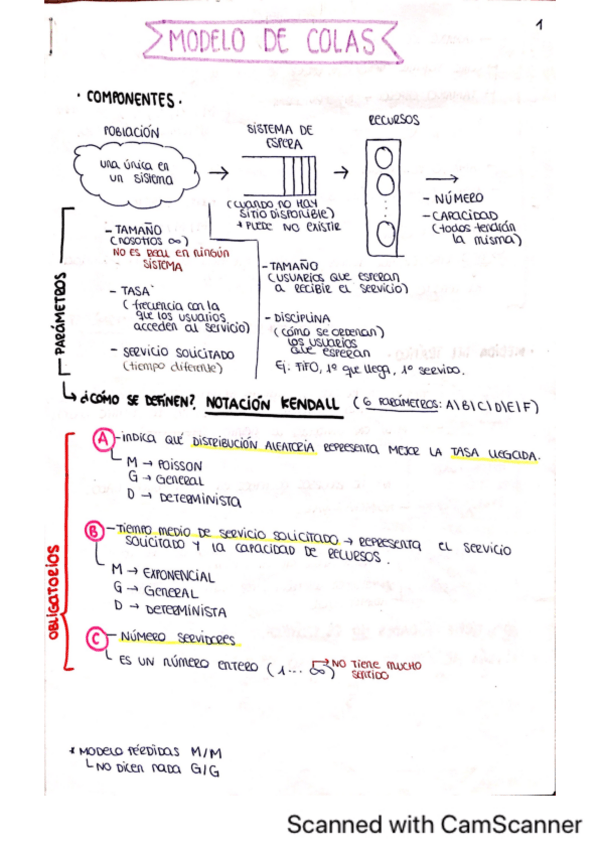 1
MODELO DE COLAS
· COMPONENTES ·
POBLACIÓN
una única en
un sistema
SISTEMA DE
ESPERA
(CUANDO NO HAY
SITIO DISPONIBLE)
* PUEDE NO EXISTIR
RECURSOS
- NÚMERO
- CAPACIDAD
(todos tendrán
la misma)
PARÁMETROS
- TAMAÑO
(NOSOTROS ∞)
NO ES REAL EN NINGÚN
SISTEMA
- TASA
(frecuencia con la
que los usuarios
acceden al servicio)
- SERVICIO SOLICITADO
(tiempo diferente)
- TAMAÑO
(USUARIOS QUE ESPERAN
A RECIBIR EL SERVICIO)
- DISCIPLINA
(cómo se ordenan)
los usuarios
que esperan
Ej: FIFO, 1º que llega, 1º servido.
¿CÓMO SE DEFINEN? NOTACIÓN KENDALL (6 PARÁMETROS: A|B|C|D|E|F)
OBLIGATORIOS
A - INDICA QUÉ DISTRIBUCIÓN ALEATORIA REPRESENTA MEJOR LA TASA LLEGADA.
M → POISSON
G → GENERAL
D → DETERMINISTA
B - TIEMPO MEDIO DE SERVICIO SOLICITADO → REPRESENTA EL SERVICIO
SOLICITADO Y LA CAPACIDAD DE RECURSOS.
M → EXPONENCIAL
G → GENERAL
D → DETERMINISTA
C - NÚMERO SERVIDORES
ES UN NÚMERO ENTERO (1... ∞) → NO TIENE MUCHO
SENTIDO
* MODELO PÉRDIDAS M/M
NO DICEN NADA G/G
Scanned with CamScanner